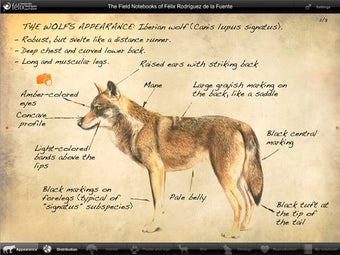 The Field Notebooks of Félix Rodríguez de la Fuente
Settings
THE WOLF'S APPEARANCE: Iberian wolf (Canis lupus signatus).
- Robust, but svelte like a distance runner.
- Deep chest and curved lower back.
- Long and muscular legs.
Raised ears with striking back
Mane
Large grayish marking on
the back, like a saddle
Amber-colored
eyes
Concave
profile
Black central
marking
Light-colored
bands above the
lips
Black markings on
forelegs (typical of
"signatus" subspecies)
Pale belly
Black tuft at
the tip of
the tail
Appearance
Distribution